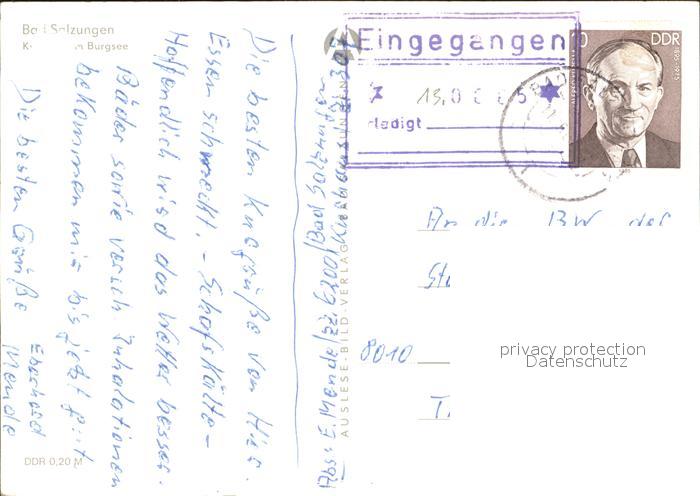 Bad Salzungen
Burgsee
Die besten Kurgrüße von hier.
Essen schmeckt. - Schafskälte -
Hoffendlich wird das Wetter besser.
Bäder sowie versch. Inhalationen
bekommen mir bis jetzt gut
Die besten Grüße
Eberhard
Mende
DDR 0,20 M
Abs.: E. Mende/zz. 6200/Bad Salzungen
AUSLESE-BILD-VERLAG BAD SALZUNGEN
Eingegangen
13.0 6 8 5
ledigt
0 DDR
1895-1975
An die BW der
8010
privacy protection
Datenschutz